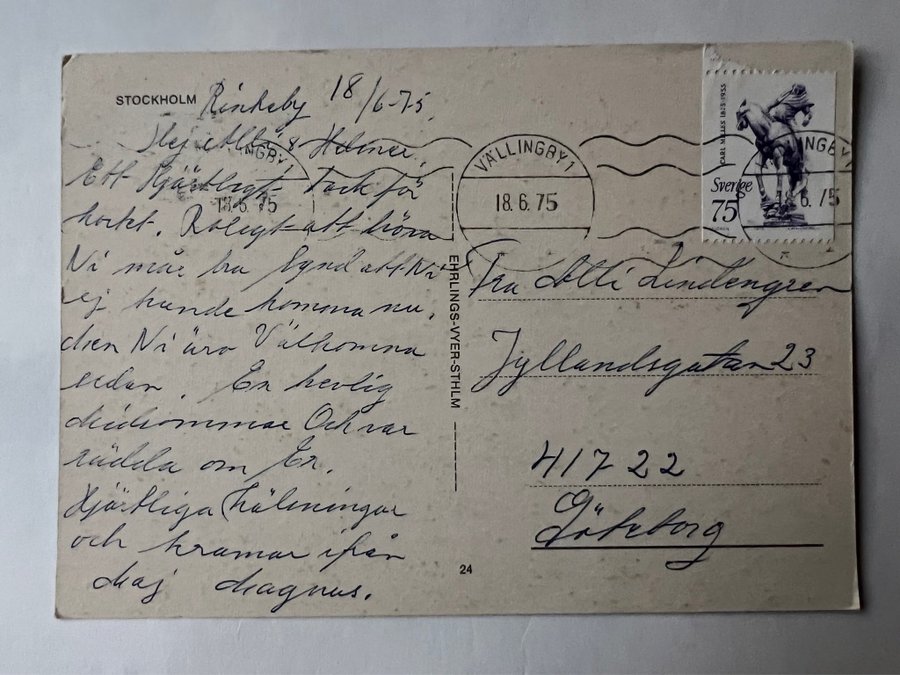 STOCKHOLM Rinkeby 18/6-75
Hej Atti & Helmer.
Ett Hjärtligt Tack för
kortet. Roligt att höra
Ni mår bra Synd att Ni
ej kunde komma nu.
Men Ni äro Välkomna
sedan. En hevlig
Midsommar Och var
rädda om Er.
Hjärtliga Hälsningar
och kramar ifrån
Maj Magnus.
EHRLINGS-VYER-STHLM
24
VÄLLINGBY 1
18.6.75
NGBY 1
18.6.75
NGBY 1
8.6.75
CARL MILLES 1875-1955
Sverige
75
Fru Atti Lindengren
Jyllandsgatan 23
417 22
Göteborg